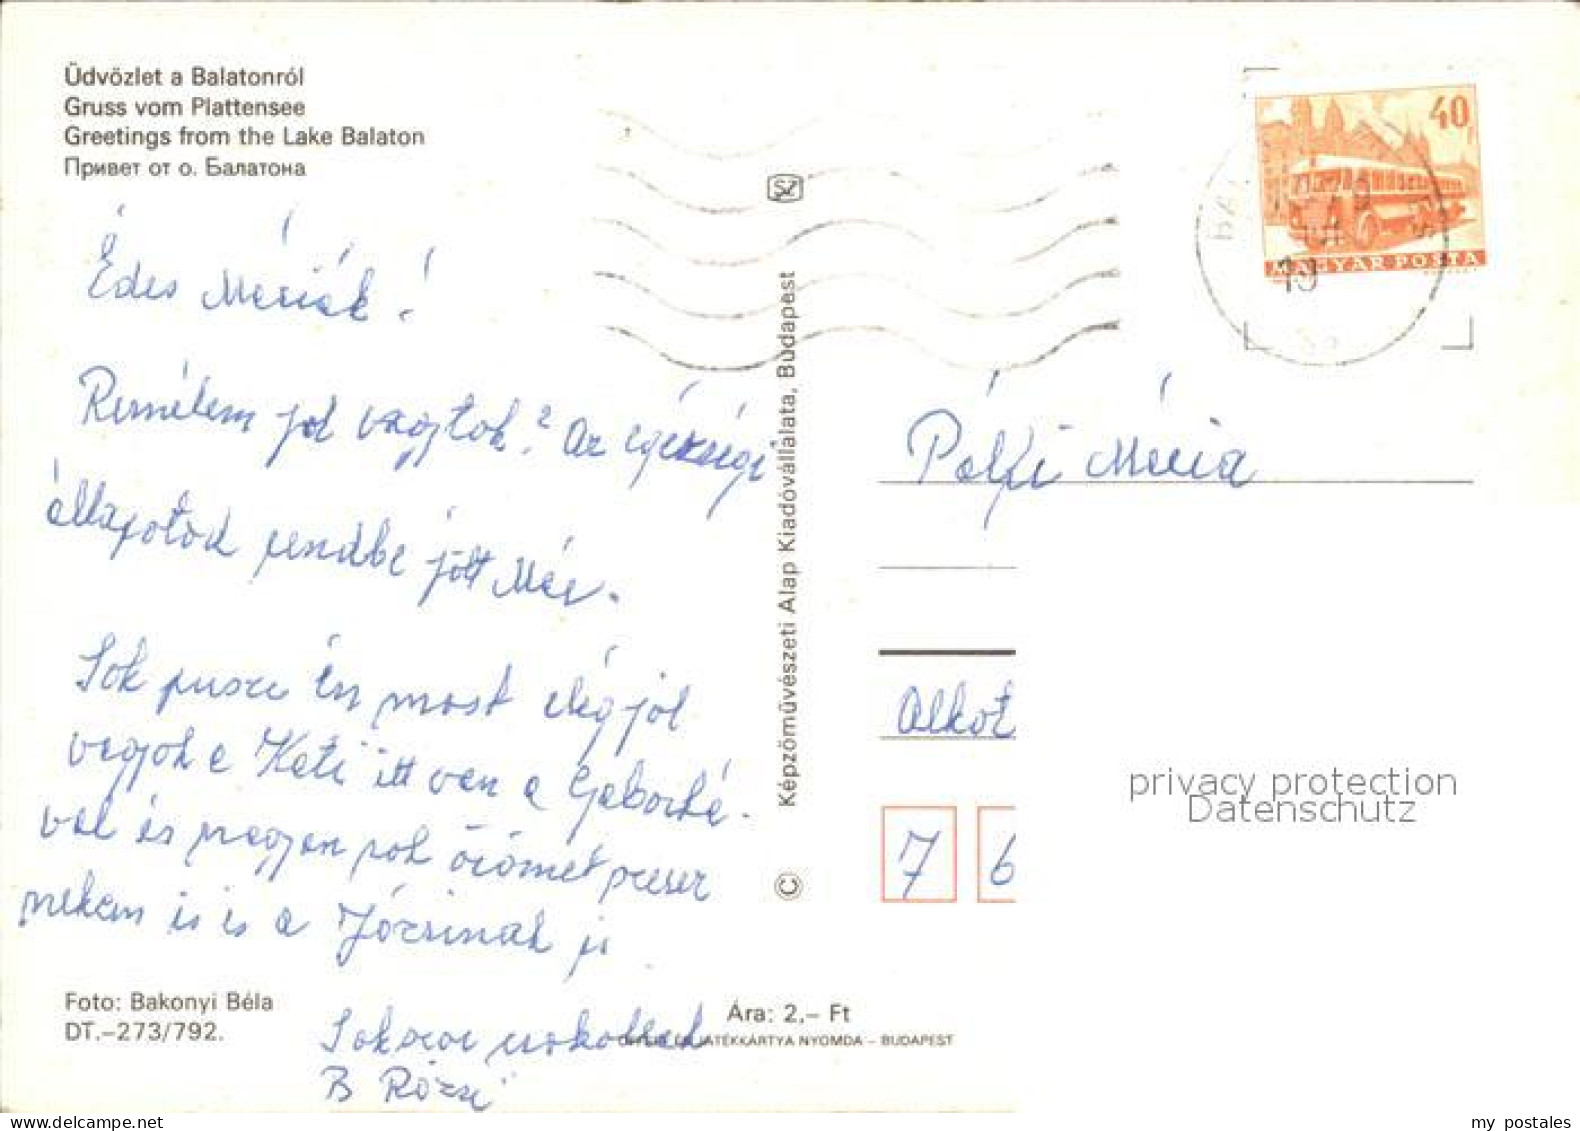 Üdvözlet a Balatonról
Gruss vom Plattensee
Greetings from the Lake Balaton
Привет от о. Балатона
Édes Máriák!
Remélem jól vagytok? Az egészségi
állapotod rendbe jött Már.
Sok puszi én most elég jól
vagyok a Kati itt van a Gaborká-
val és nagyon sok örömet szerez
nekem is is a Józsinak is
Sokszor csokollak
B Rózsi
Foto: Bakonyi Béla
DT.-273/792.
Ára: 2,- Ft
JÁTÉKKÁRTYA NYOMDA - BUDAPEST
© Képzőművészeti Alap Kiadóvállalata, Budapest
SZ
40
MAGYAR POSTA
19
Pálfi Mária
Alkot
7 6
privacy protection
Datenschutz
my postales